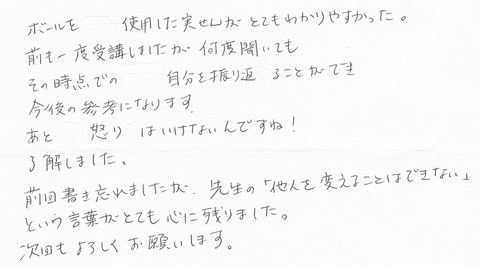 ボールを 使用した実せんがとてもわかりやすかった。
前も一度受講しましたが何度聞いても
その時点での 自分を振り返ることができ
今後の参考になります
あと 怒りはいけないんですね!
了解しました。
前回書き忘れましたが、先生の「他人を変えることはできない」
という言葉がとても心に残りました。
次回もよろしくお願いします。